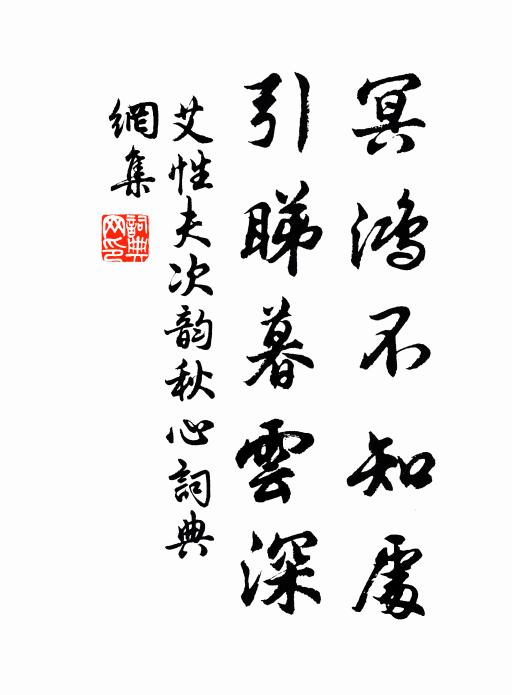 冥鴻不知處
引睇暮雲深
艾性夫次韵秋心詞典
網集
詞典
网印